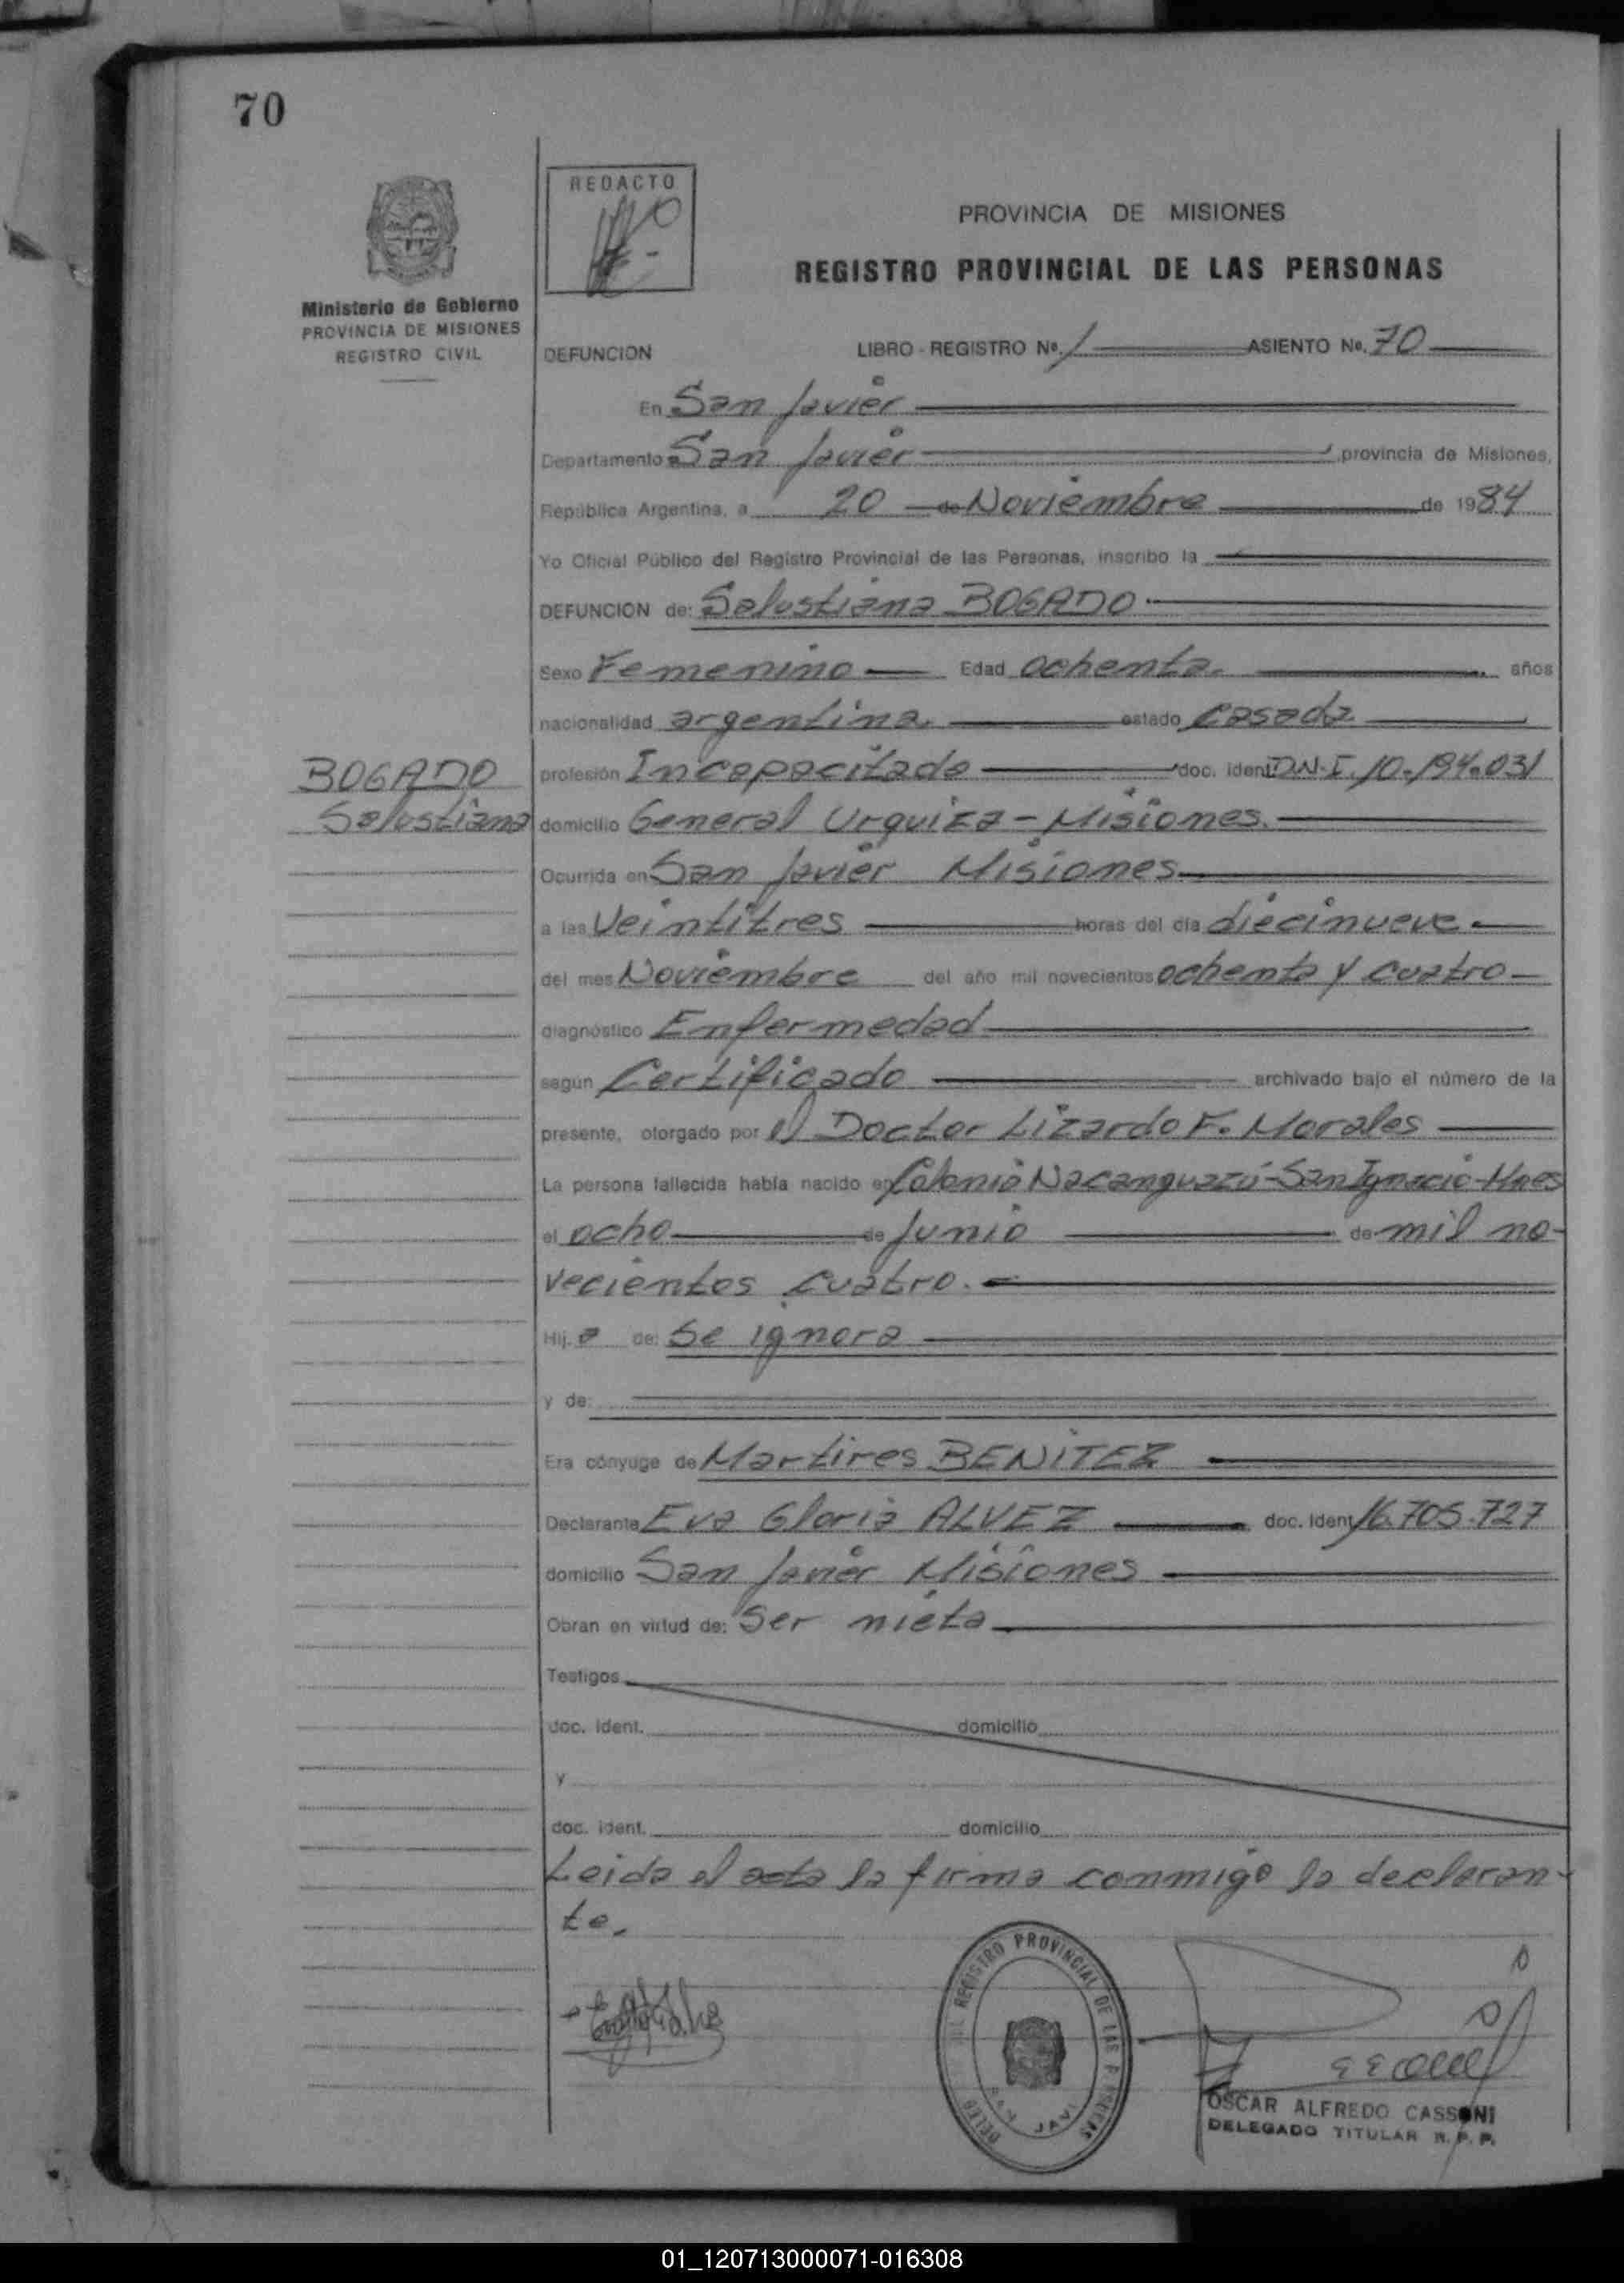 70
REDACTO
PROVINCIA DE MISIONES
REGISTRO PROVINCIAL DE LAS PERSONAS
Ministerio de Gobierno
PROVINCIA DE MISIONES
REGISTRO CIVIL
DEFUNCION LIBRO - REGISTRO Nº. 1 ASIENTO No. 70
En San Javier
Departamento San Javier, provincia de Misiones,
República Argentina, a 20 de Noviembre de 1984
Yo Oficial Público del Registro Provincial de las Personas, inscribo la
DEFUNCION de: Salustiana BOGADO.
Sexo Femenino Edad ochenta. años
nacionalidad argentina. estado Casada
BOGADO
Salustiana
profesión Incapacitada doc. ident D.N.I. 10.194.031
domicilio General Urquiza - Misiones.
Ocurrida en San Javier Misiones
a las Veintitres horas del día diecinueve.
del mes Noviembre del año mil novecientos ochenta y cuatro
diagnóstico Enfermedad
según Certificado archivado bajo el número de la
presente, otorgado por el Doctor Lizardo F. Morales
La persona fallecida había nacido en Colonia Ñacanguazú - San Ignacio - Mnes
el ocho de Junio de mil no-
vecientos cuatro.
Hij.a de: Se ignora
y de:
Era cónyuge de Martires BENITEZ
Declarante Eva Gloria ALVEZ doc. ident 16.705.727
domicilio San Javier Misiones
Obran en virtud de: Ser nieta
Testigos
doc. ident. domicilio
y
doc. ident. domicilio
Leida el acta la firma conmigo la declaran-
te.
REGISTRO PROVINCIAL DE LAS
SAN JAVI
OSCAR ALFREDO CASSONI
DELEGADO TITULAR R. P. P.
01_120713000071-016308